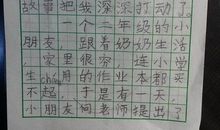 故事把我深深打动了。
一个二年级的小
朋友，跟着奶奶生活
，家里很穷，连小学
生chang用的作业本都买
不起，于是有一天，
小朋友向老师提出了